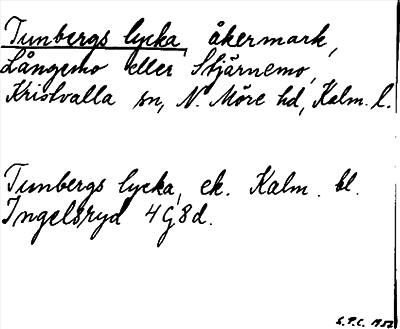 Tunbergs lycka, åkermark,
Långemo eller Stjärnemo,
Kristvalla sn, N. Möre hd, Kalm. l.
Tunbergs lycka, ek. Kalm. bl.
Ingelsryd 4G8d.
S.P.C. 1952